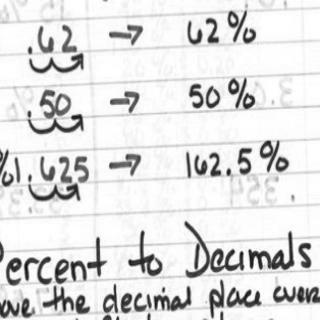 .62 → 62%
.50 → 50%
%1.625 → 162.5%
ercent to Decimals
ove the decimal place over